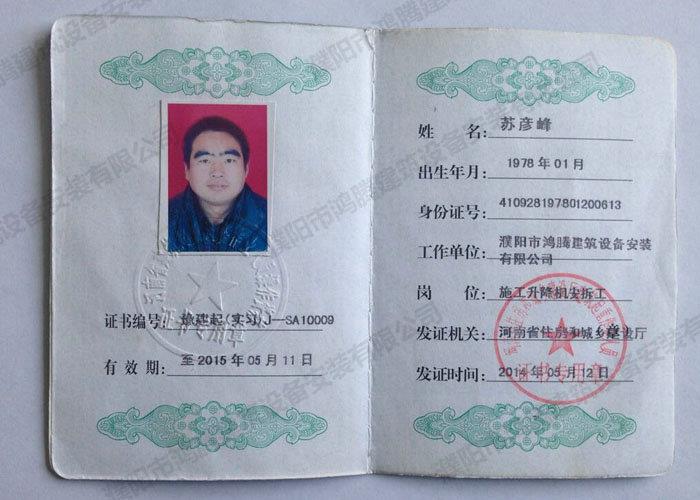 证书编号: 豫建起(实习)J—SA10009
有效期: 至2015年05月11日
姓 名: 苏彦峰
出生年月: 1978年01月
身份证号: 410928197801200613
工作单位: 濮阳市鸿腾建筑设备安装
有限公司
岗 位: 施工升降机安拆工
发证机关: 河南省住房和城乡建设厅
发证时间: 2014年05月12日
证书专用章
证书专用章
濮阳市鸿腾建筑设备安装有限公司